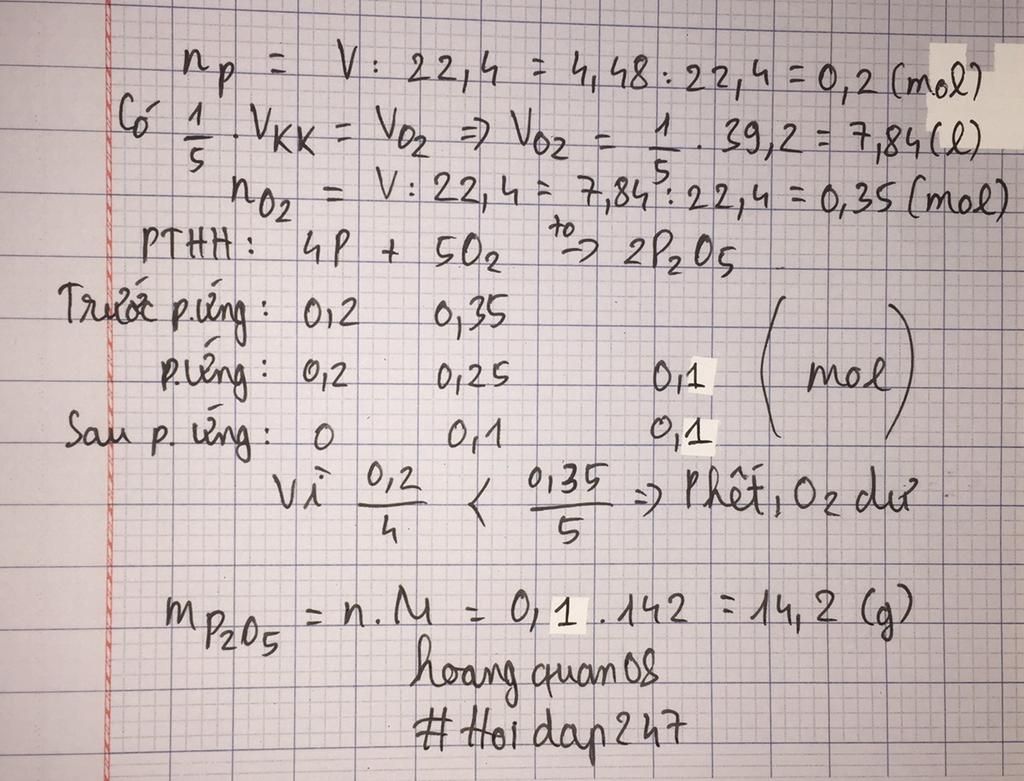 n_P = V : 22,4 = 4,48 : 22,4 = 0,2 (mol)
Có 1/5 . V_KK = V_O2 => V_O2 = 1/5 . 39,2 = 7,84 (l)
n_O2 = V : 22,4 = 7,84 : 22,4 = 0,35 (mol)
PTHH : 4P + 5O2 to→ 2P2O5
Trước p.ứng : 0,2 0,35
p.ứng : 0,2 0,25 0,1 (mol)
Sau p. ứng : 0 0,1 0,1
Vì 0,2/4 < 0,35/5 => P hết, O2 dư
m_P2O5 = n.M = 0,1 . 142 = 14,2 (g)
hoang quan08
# Hoi dap 247